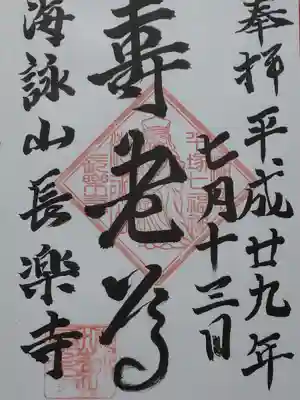 奉拝 平成廿九年
七月十三日
寿老尊
海詠山長楽寺
平塚七福神